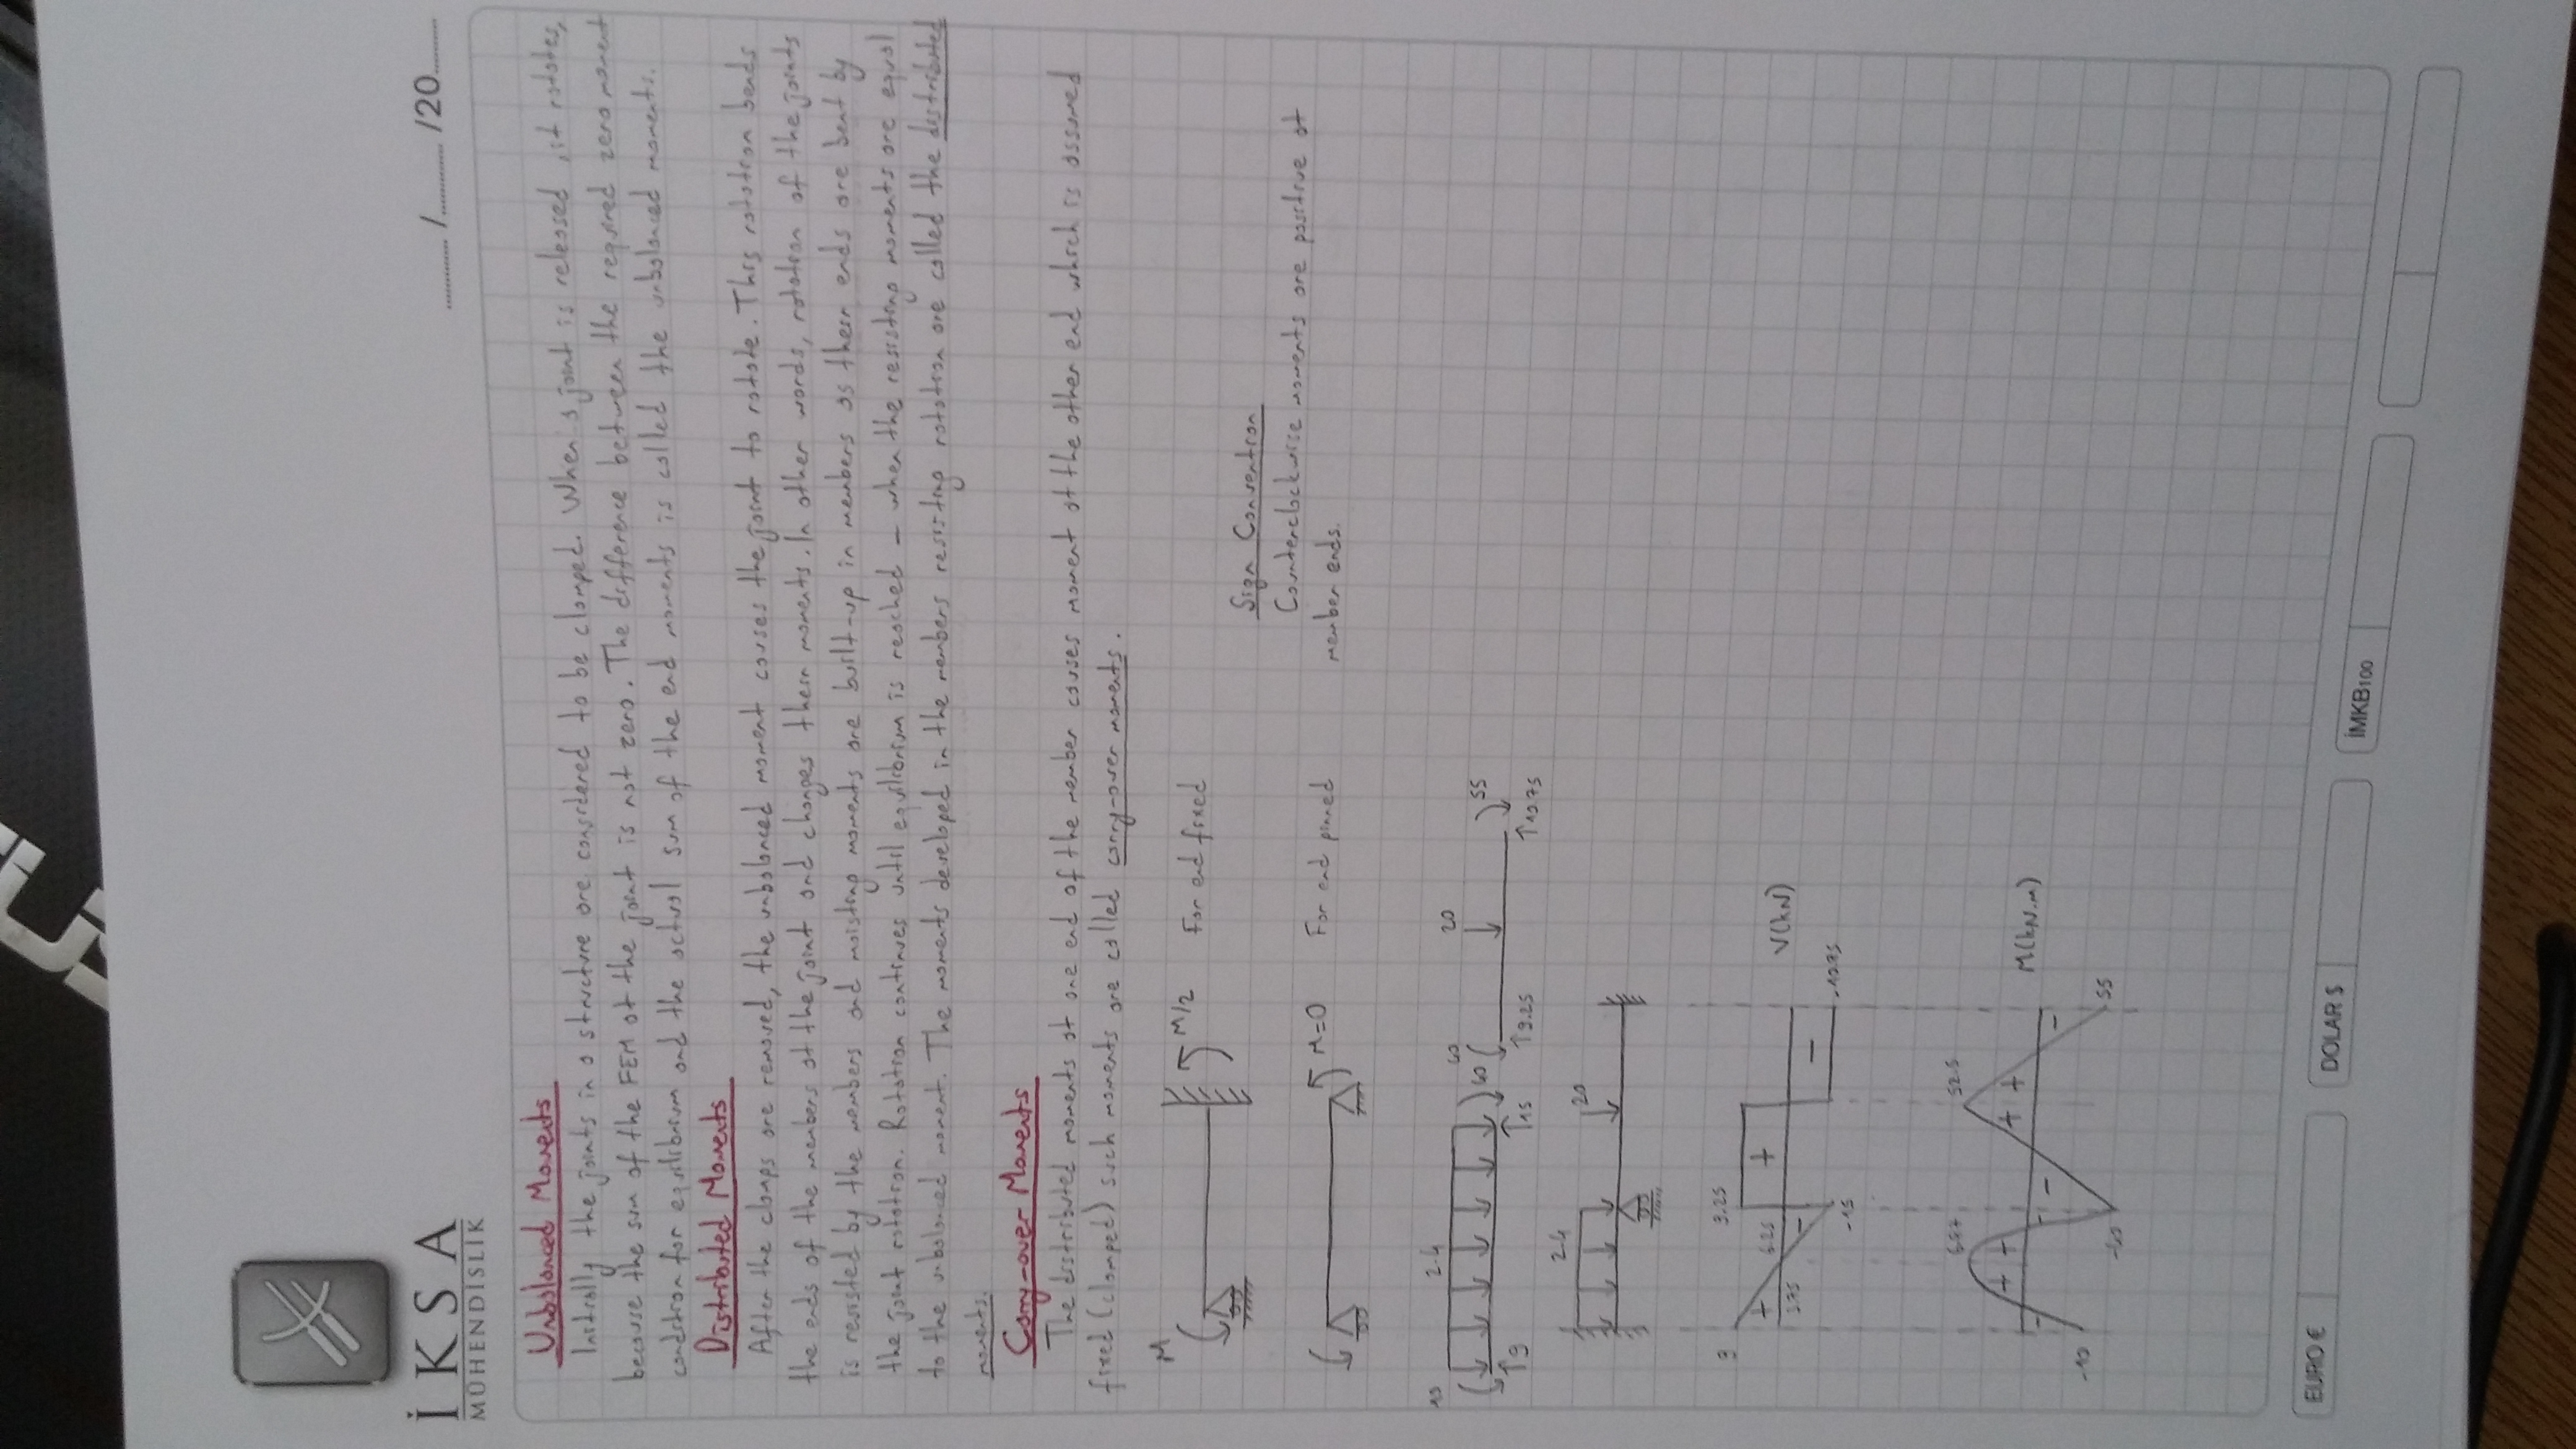 İKSA
MÜHENDİSLİK
/ /20
Unbalanced Moments
Initially the joints in a structure are considered to be clamped. When a joint is released, it rotates,
because the sum of the FEM at the joint is not zero. The difference between the required zero moment
condition for equilibrium and the actual sum of the end moments is called the unbalanced moments.
Distributed Moments
After the clamps are removed, the unbalanced moment causes the joint to rotate. This rotation bends
the ends of the members at the joint and changes their moments. In other words, rotation of the joints
is resisted by the members and moisting moments are built-up in members as their ends are bent by
the joint rotation. Rotation continues until equilibrium is reached – when the resisting moments are equal
to the unbalanced moment. The moments developed in the members resisting rotation are called the distributed
moments.
Carry-over Moments
The distributed moments at one end of the member causes moment at the other end which is assumed
fixed (clamped) such moments are called carry-over moments.
M M/2 For end fixed
Sign Convention
Counterclockwise moments are positive at
member ends.
M=0 For end pinned
10 2.4 40 40 20 55
9 15 9.25 10.75
2.4 20
9 9.25
+ 6.25 + V(kN)
3.75 – –
-15 -10.75
6.87 52.5
+ + + + M(kN.m)
– – – –
-10 -40 55
EURO € DOLAR $ İMKB100